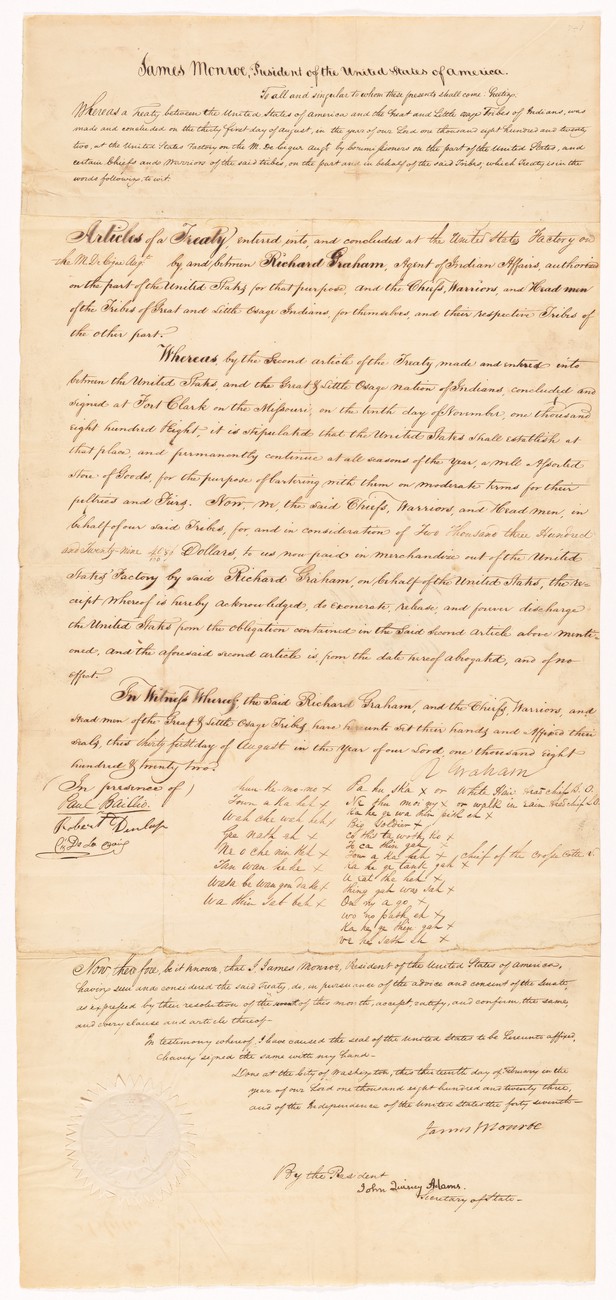 James Monroe, President of the United States of america.
To all and singular to whom these presents shall come Greeting
Whereas a Treaty between the United States of America and the Great and Little osage Tribes of Indians, was
made and concluded on the thirty first day of august, in the year of our Lord one thousand eight hundred and twenty
two, at the United States Factory on the M. De Cigue Augt. by Commissioners on the part of the United States, and
certain Chiefs and Warriors of the said tribes, on the part and in behalf of the said Tribes, which Treaty is in the
words following, to wit.
Articles of a Treaty, entered into, and concluded at the United States Factory on
the M. De Cigue Augt. by and between Richard Graham, Agent of Indian Affairs, authorized
on the part of the United States for that purpose, and the Chiefs, Warriors, and Head men
of the Tribes of Great and Little Osage Indians, for themselves, and their respective Tribes of
the other part.
Whereas, by the Second article of the Treaty made and entered into
between the United States, and the Great & Little Osage nation of Indians, concluded and
signed at Fort Clark on the Missouri, on the tenth day of November, one thousand
eight hundred & eight, it is stipulated that the United States shall establish at
that place, and permanently continue at all seasons of the year, a well assorted
Store of Goods, for the purpose of bartering with them on moderate terms for their
peltries and Furs. Now, we, the said Chiefs, Warriors, and Head men, in
behalf of our said Tribes, for, and in consideration of Two Thousand three Hundred
and Twenty-nine 40/100 Dollars, to us now paid in merchandize out of the United
States Factory by said Richard Graham, on behalf of the United States, the re-
ceipt whereof is hereby acknowledged, do exonerate, release, and forever discharge
the United States from the obligation contained in the Said Second Article above menti-
oned, and the aforesaid second article is, from the date hereof abrogated, and of no
effect.
In Witness Whereof, the Said Richard Graham, and the Chiefs, Warriors, and
Head men of the Great & Little Osage Tribes, have hereunto Set their hands and Affixed their
seals, this thirty first day of August in the Year of our Lord, one thousand eight
hundred & twenty two.
R Graham
In presence of
Paul Baillio.
Robert Dunlap
Pa hu ska x or White Hair Head chief B. O.
Ne chu mo ing x or walk in rain Head chief
Big Soldier x
Now therefore, be it known, that I, James Monroe, President of the United States of America,
having seen and considered the said Treaty, do, in pursuance of the advice and consent of the Senate,
as expressed by their resolution of the of this month, accept, ratify, and confirm the same,
and every clause and article thereof—
In testimony whereof, I have caused the seal of the United States to be hereunto affixed,
having signed the same with my hand—
Done at the City of Washington, this thirteenth day of February in the
year of our Lord one thousand eight hundred and twenty three,
and of the Independence of the United States the forty seventh—
James Monroe
By the President
John Quincy Adams.
Secretary of State—